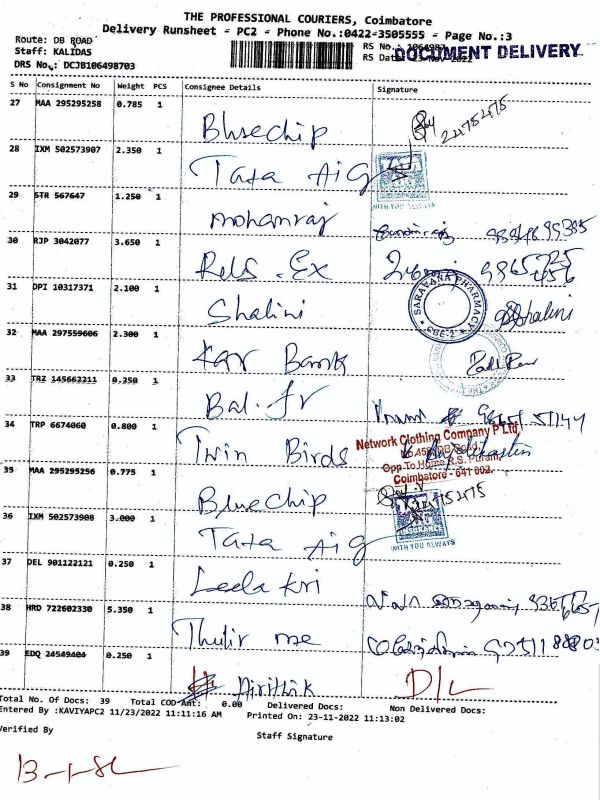 THE PROFESSIONAL COURIERS, Coimbatore
Delivery Runsheet - PC2 - Phone No.:0422-3505555 - Page No.:3
Route: DB ROAD
RS No.: 1064987
DOCUMENT DELIVERY
Staff: KALIDAS
RS Dat 23-Nov-2022
DRS No.: DCJB106498703
S No Consignment No Weight PCS Consignee Details Signature
27 MAA 295295258 0.785 1 Bluechip 24752475
28 IXM 502573907 2.350 1 Tata Aig
WITH YOU ALWAYS
29 STR 567647 1.250 1 mohanraj
30 RJP 3042077 3.650 1 Rels.Ex
31 DPI 10317371 2.100 1 Shalini Shalini
SARAVANA PHARMACY
CBE-2
32 MAA 297559606 2.300 1 Kar Bank
33 TRZ 145662211 0.250 1 Bal.Jr
34 TRP 6674060 0.800 1 Twin Birds
Network Clothing Company P Ltd
DB Road
Opp To Home R.S. Puram
Coimbatore - 641 002.
35 MAA 295295256 0.775 1 Bluechip 24752475
36 IXM 502573908 3.000 1 Tata Aig
INSURANCE
WITH YOU ALWAYS
37 DEL 901122121 0.250 1 Leela Kri
38 HRD 722602330 5.350 1 Thulir me
39 EDQ 24549404 0.250 1 Airithik D/L
Total No. Of Docs: 39 Total COD Amt: 0.00 Delivered Docs: Non Delivered Docs:
Entered By :KAVIYAPC2 11/23/2022 11:11:16 AM Printed On: 23-11-2022 11:13:02
Verified By Staff Signature